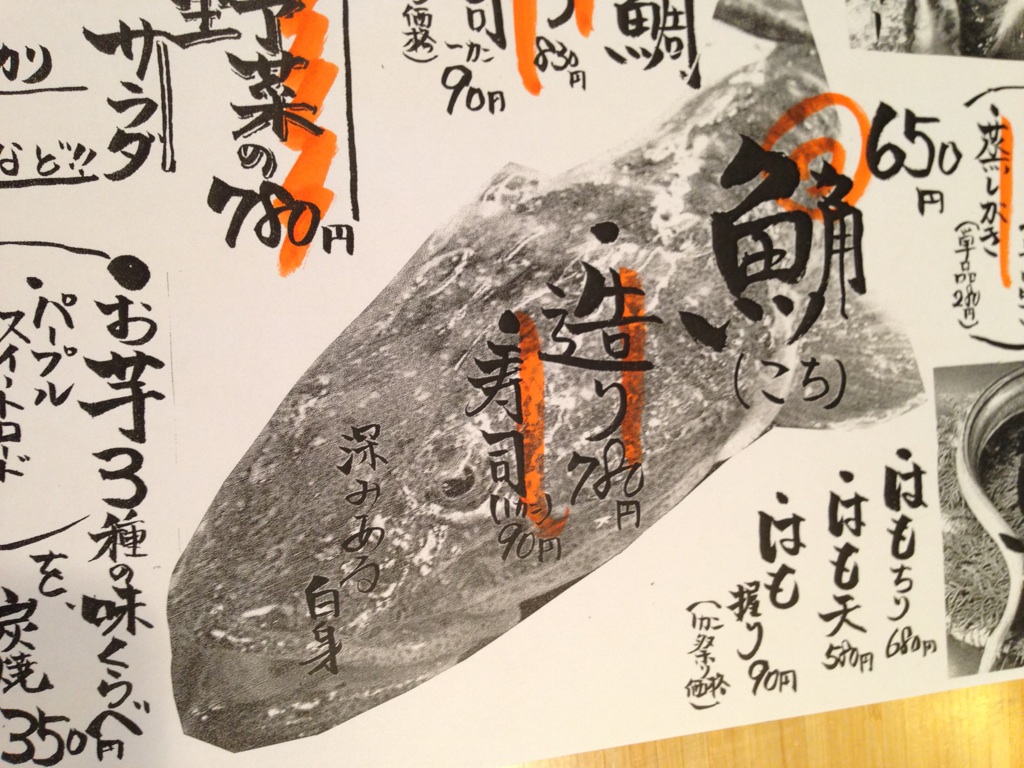 鯛
り
830円
司
一カン
90円
価格)
野菜の
780円
サラダ
カリ
など!!
650円
蒸しかき
(単品 290円)
鯒
(こち)
・造り
780円
・寿司
(1カン)
90円
深みある
白身
・はもちり
680円
・はも天
580円
・はも
握り
90円
(1カン祭り価格)
・お芋3種の味くらべ
・パープル
スイートロード
を、
炭焼
350円